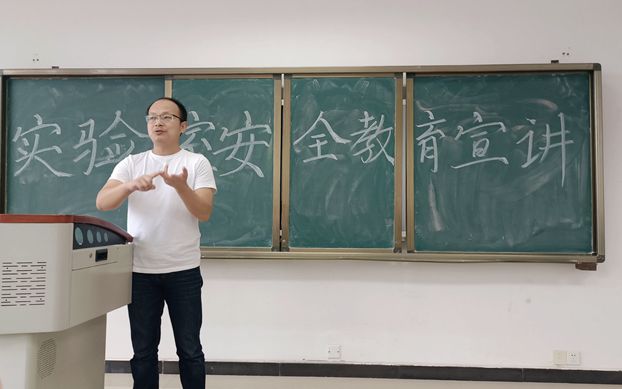 实验室安全教育宣讲